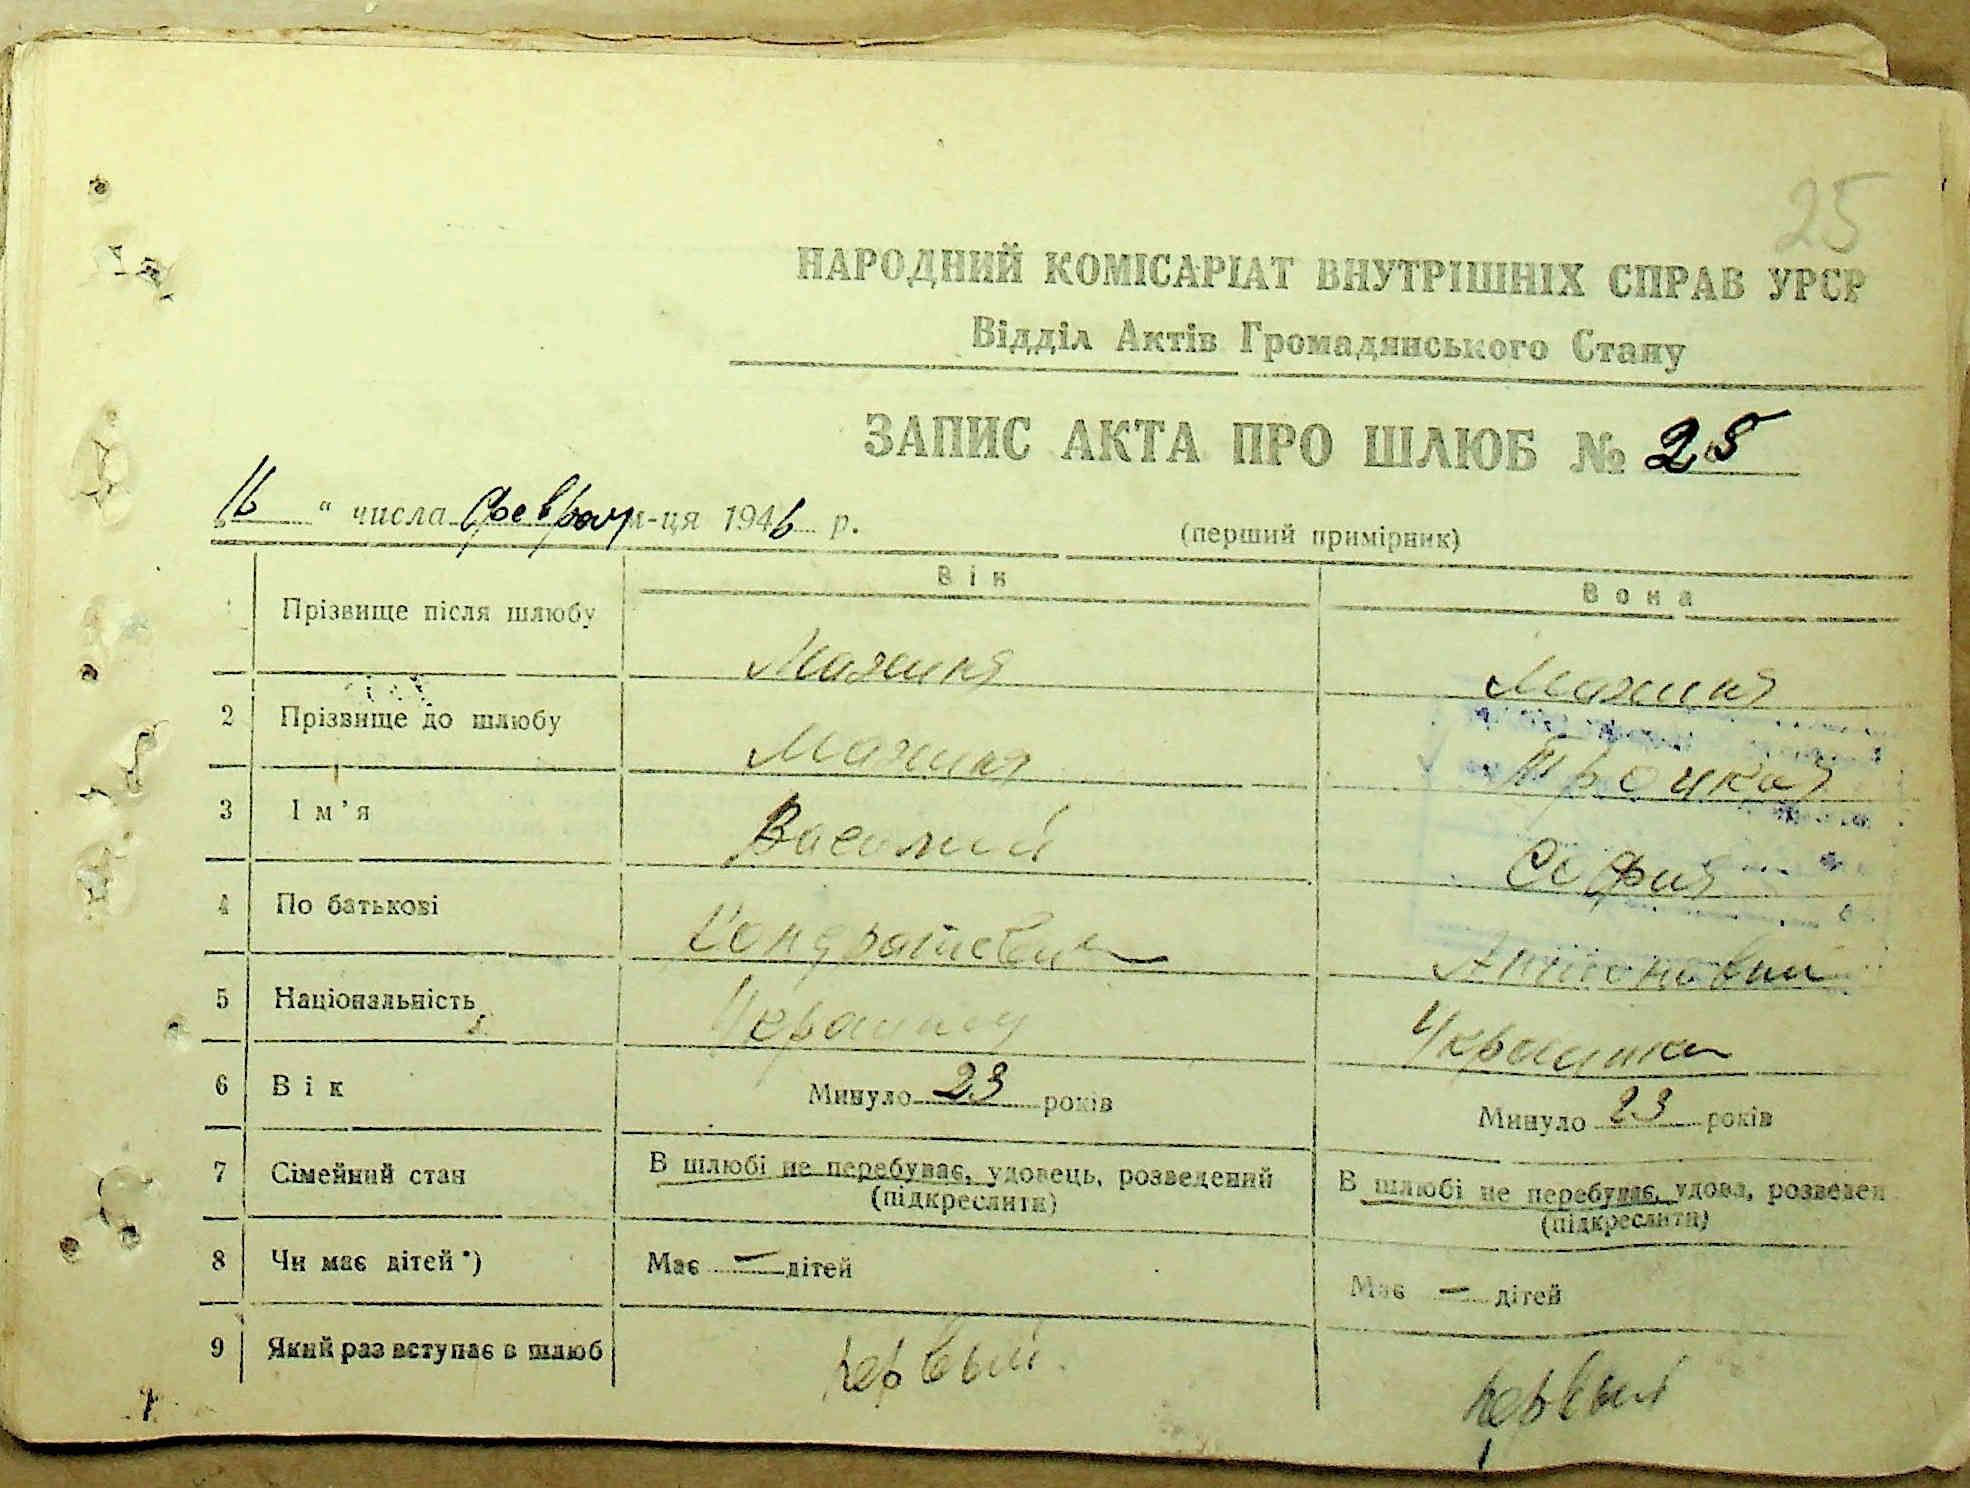 25
НАРОДНИЙ КОМІСАРІАТ ВНУТРІШНІХ СПРАВ УРСР
Відділ Актів Громадянського Стану
ЗАПИС АКТА ПРО ШЛЮБ № 25
„16 “ числа феврал м-ця 1946 р.
(перший примірник)
Він Вона
Прізвище після шлюбу
2 Прізвище до шлюбу Троцкая
3 Ім'я Василий София
4 По батькові Кондратьевич Антоновна
5 Національність Украинец Украинка
6 Вік Минуло 23 років Минуло 23 років
7 Сімейний стан В шлюбі не перебуває, удовець, розведений В шлюбі не перебуває, удова, розведен
(підкреслити) (підкреслити)
8 Чи має дітей*) Має — дітей Має — дітей
9 Який раз вступає в шлюб первый первый